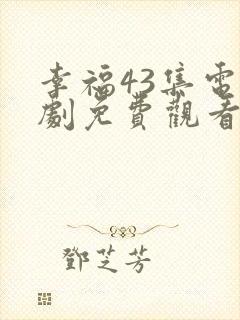 幸福43集電
劇免費觀看
鄧芝芳